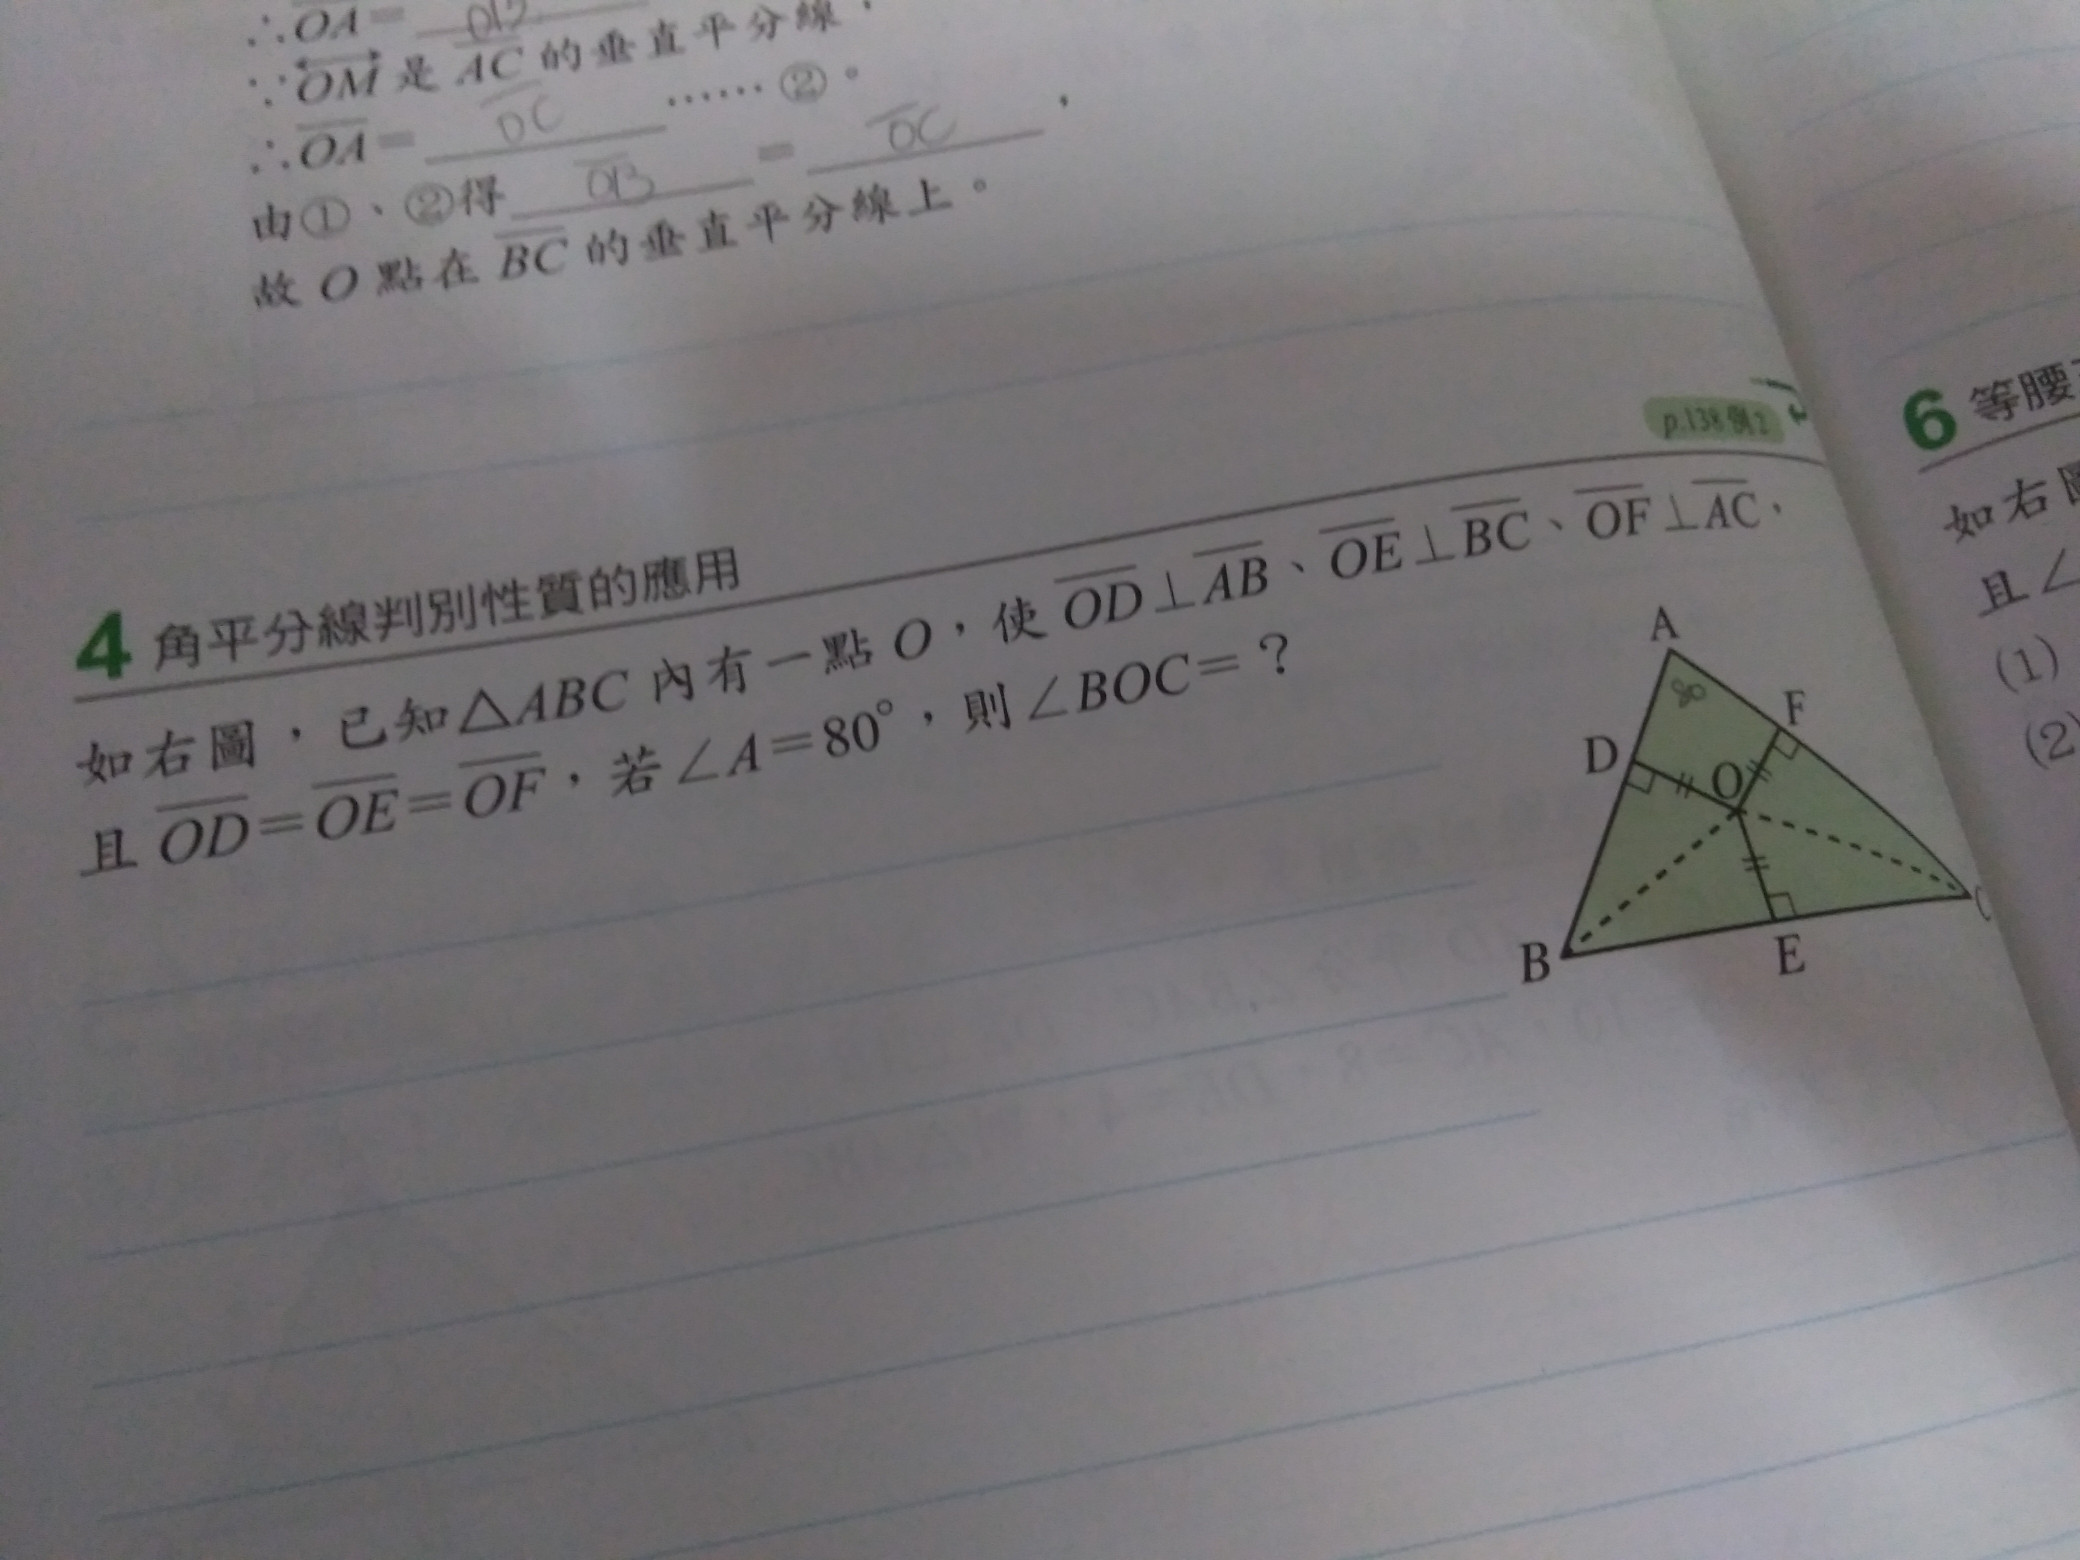 ∴OA=
∵OM是AC的垂直平分線，
∴OA= OC ……②。
由①、②得 OB = OC ，
故O點在BC的垂直平分線上。
p.138例2
4 角平分線判別性質的應用
如右圖，已知△ABC內有一點O，使OD⊥AB、OE⊥BC、OF⊥AC，
且OD=OE=OF，若∠A=80°，則∠BOC=？
A
80
F
D
O
B
E
6 等腰
如右
且∠
(1)
(2)